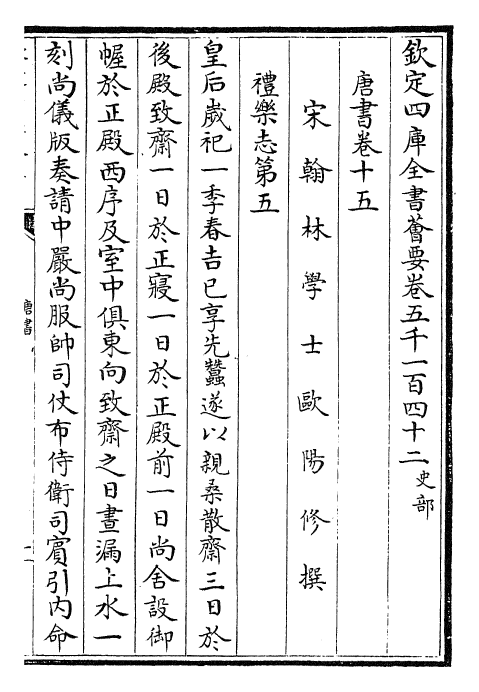 欽定四庫全書薈要卷五千一百四十二史部
唐書卷十五
宋翰林學士歐陽修撰
禮樂志第五
皇后歲祀一季春吉巳享先蠶遂以親桑散齋三日於
後殿致齋一日於正寢一日於正殿前一日尚舍設御
幄於正殿西序及室中俱東向致齋之日晝漏上水一
刻尚儀版奏請中嚴尚服帥司仗布侍衛司賓引内命
唐書